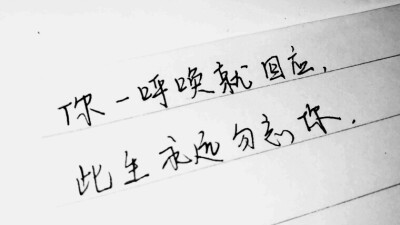 你一呼唤就回应,
此生永远勿忘你.